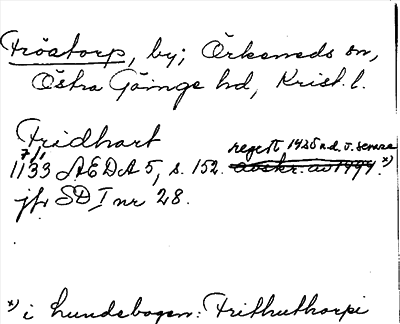 Tröstorp, by; Örkeneds sn,
Östra Göinge hd, Krist. l.
Fridhart
7/1
1133 AEDA 5, s. 152. regest 1425 n.d. o. senare
avskr. av 1494. *)
jfr SD I nr 28.
*) i Lundsbogen: Frithuthorpi